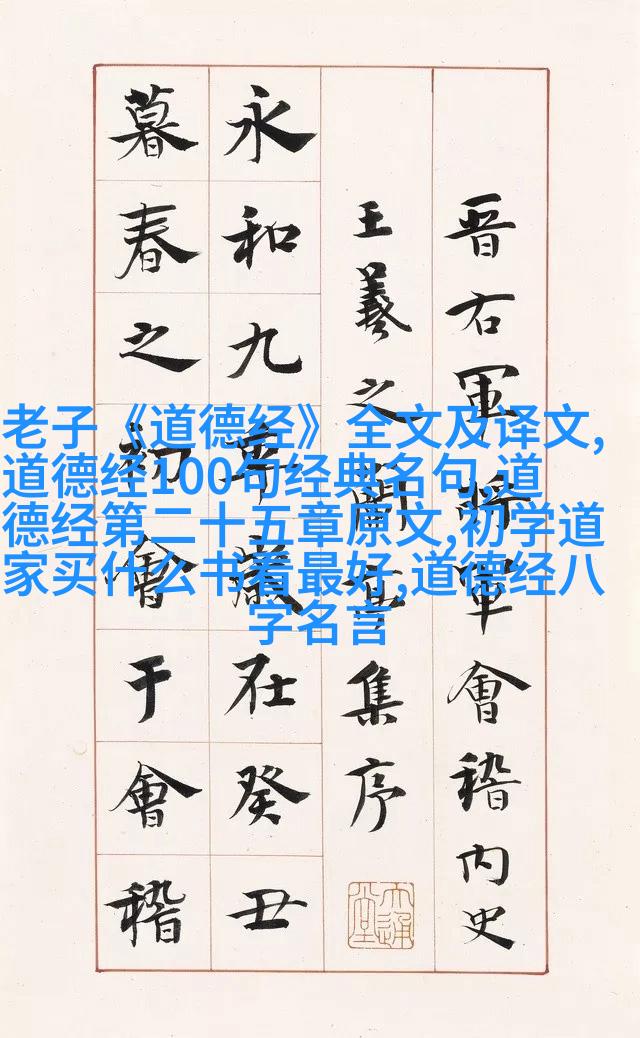 晋右軍将軍會稽内史
王羲之蘭亭集序
永和九年歲在癸丑
暮春之初會于會稽
老子《道德经》全文及译文,
道德经100句经典名句,道
德经第二十五章原文,初学道
家买什么书看最好,道德经八
字名言